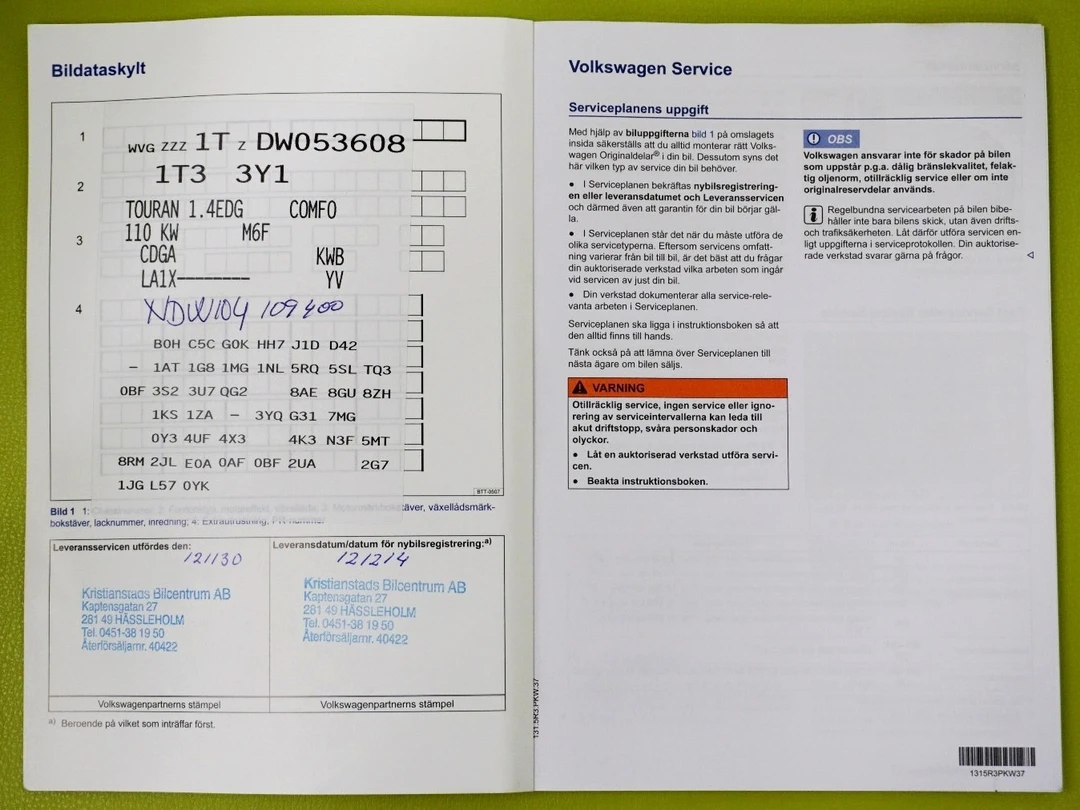 Bildataskylt
1
WVG ZZZ 1T Z DW053608
2
1T3 3Y1
TOURAN 1.4EDG COMFO
3
110 KW M6F
CDGA KWB
LA1X--------- YV
4
NDW104 109400
B0H C5C G0K HH7 J1D D42
- 1AT 1G8 1MG 1NL 5RQ 5SL TQ3
0BF 3S2 3U7 QG2 8AE 8GU 8ZH
1KS 1ZA - 3YQ G31 7MG
0Y3 4UF 4X3 4K3 N3F 5MT
8RM 2JL E0A 0AF 0BF 2UA 2G7
1JG L57 0YK
BTT-0607
Bild 1 1: täver, växellådsmärk-
bokstäver, lacknummer, inredning; 4: Extrautrustning, PR-nummer
Leveransservicen utfördes den:
121130
Kristianstads Bilcentrum AB
Kaptensgatan 27
281 49 HÄSSLEHOLM
Tel. 0451-38 19 50
Återförsäljarnr. 40422
Volkswagenpartnerns stämpel
Leveransdatum/datum för nybilsregistrering:a)
121214
Kristianstads Bilcentrum AB
Kaptensgatan 27
281 49 HÄSSLEHOLM
Tel. 0451-38 19 50
Återförsäljarnr. 40422
Volkswagenpartnerns stämpel
a) Beroende på vilket som inträffar först.
131.5R3.PKW.37
Volkswagen Service
Serviceplanens uppgift
Med hjälp av biluppgifterna bild 1 på omslagets
insida säkerställs att du alltid monterar rätt Volks-
wagen Originaldelar® i din bil. Dessutom syns det
här vilken typ av service din bil behöver.
● I Serviceplanen bekräftas nybilsregistrering-
en eller leveransdatumet och Leveransservicen
och därmed även att garantin för din bil börjar gäl-
la.
● I Serviceplanen står det när du måste utföra de
olika servicetyperna. Eftersom servicens omfatt-
ning varierar från bil till bil, är det bäst att du frågar
din auktoriserade verkstad vilka arbeten som ingår
vid servicen av just din bil.
● Din verkstad dokumenterar alla service-rele-
vanta arbeten i Serviceplanen.
Serviceplanen ska ligga i instruktionsboken så att
den alltid finns till hands.
Tänk också på att lämna över Serviceplanen till
nästa ägare om bilen säljs.
VARNING
Otillräcklig service, ingen service eller igno-
rering av serviceintervallerna kan leda till
akut driftstopp, svåra personskador och
olyckor.
● Låt en auktoriserad verkstad utföra servi-
cen.
● Beakta instruktionsboken.
OBS
Volkswagen ansvarar inte för skador på bilen
som uppstår p.g.a. dålig bränslekvalitet, felak-
tig oljenorm, otillräcklig service eller om inte
originalreservdelar används.
Regelbundna servicearbeten på bilen bibe-
håller inte bara bilens skick, utan även drifts-
och trafiksäkerheten. Låt därför utföra servicen en-
ligt uppgifterna i serviceprotokollen. Din auktorise-
rade verkstad svarar gärna på frågor.
1315R3PKW37